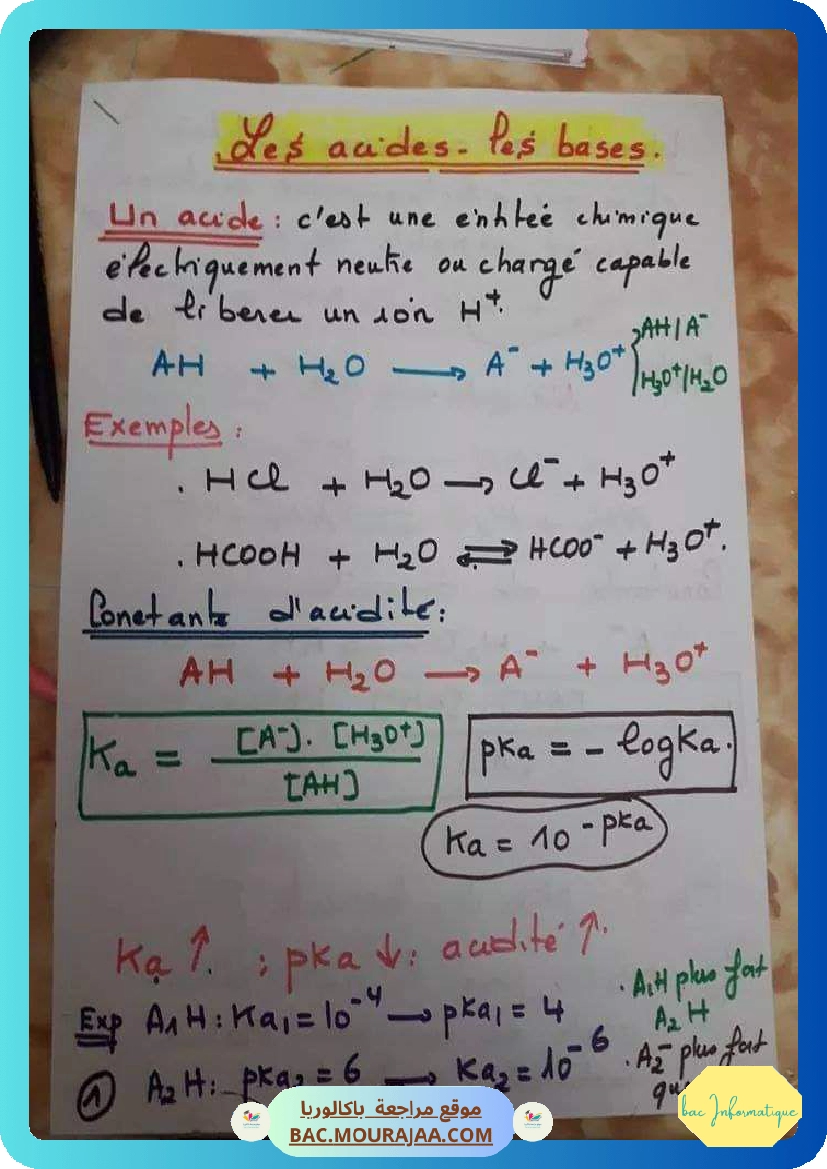 Les acides - les bases.
Un acide : c'est une entiteé chimique
électriquement neutre ou chargé capable
de liberer un ion H⁺.
AH + H₂O → A⁻ + H₃O⁺ { AH / A⁻
H₃O⁺/H₂O
Exemples :
. HCl + H₂O → Cl⁻ + H₃O⁺
. HCOOH + H₂O ⇌ HCOO⁻ + H₃O⁺.
Constante d'acidité :
AH + H₂O → A⁻ + H₃O⁺
Ka = [A⁻]. [H₃O⁺] / [AH]
pKa = - logKa.
Ka = 10⁻ᵖᴷᵃ
Ka ↑. : pKa ↓ : acidité ↑.
Exp A₁H : Ka₁ = 10⁻⁴ → pKa₁ = 4
. A₁H plus fort
A₂H
① A₂H : pKa₂ = 6 → Ka₂ = 10⁻⁶
. A₂⁻ plus fort
موقع مراجعة باكالوريا
BAC.MOURAJAA.COM
bac Informatique